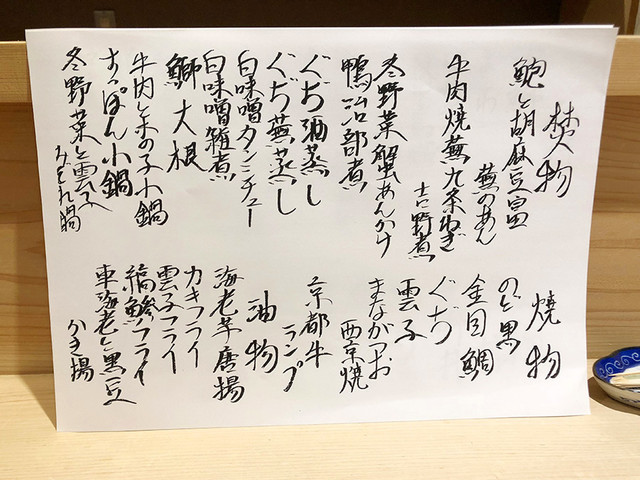 焚物
鮑と胡麻豆富
蕪のあん
牛肉焼蕪九条ねぎ
吉野煮
冬野菜蟹あんかけ
鴨治部煮
ぐぢ酒蒸し
ぐぢ蕪蒸し
白味噌タンシチュー
白味噌雑煮
鰤大根
牛肉と木の子小鍋
すっぽん小鍋
冬野菜と雲子
みぞれ鍋
焼物
のど黒
金目鯛
ぐぢ
雲子
まながつお
西京焼
京都牛
ランプ
油物
海老芋唐揚
カキフライ
雲子フライ
縞鯵フライ
車海老と黒豆
かき揚